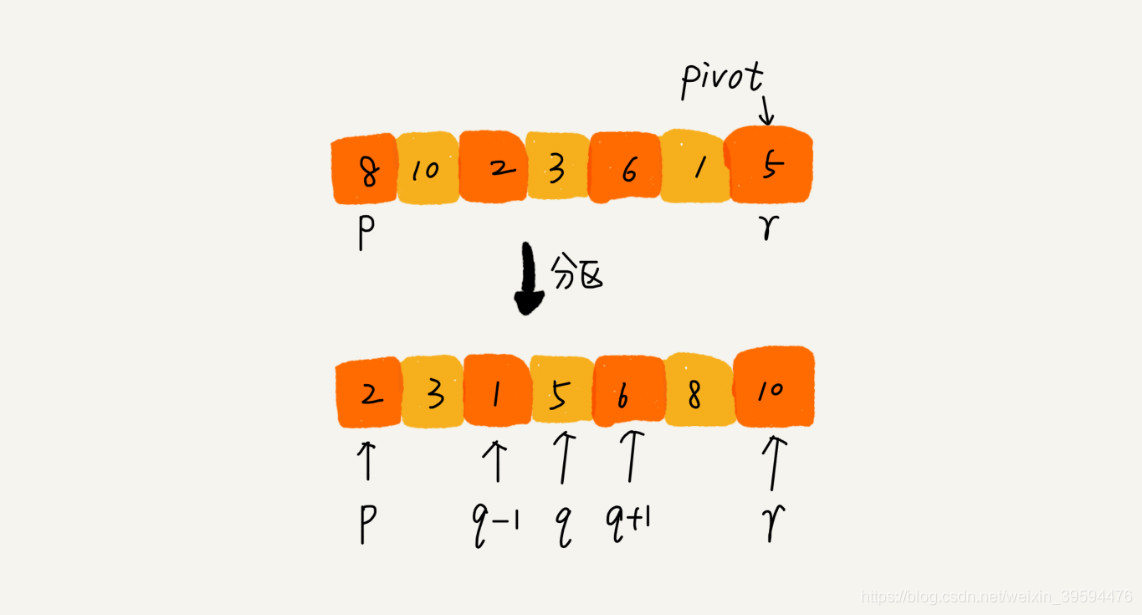 pivot
8 10 2 3 6 1 5
p r
分区
2 3 1 5 6 8 10
p q-1 q q+1 r
https://blog.csdn.net/weixin_39594476